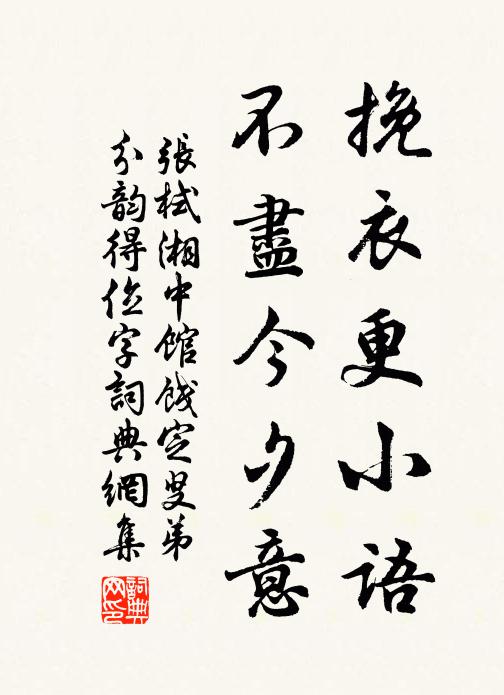 挽衣更小语
不盡今夕意
張栻湘中馆饯定叟弟
分韵得位字詞典網集
詞典網印